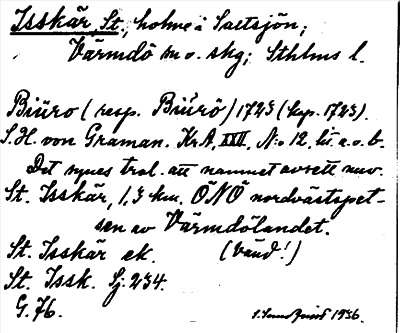 Isskär, St., holme i Saltsjön;
Värmdö m o. skg; Sthlms l.
Biüro (resp. Biürö) 1723 (kop. 1723).
S. H. von Graman. KrA, XXII, N:o 12 lit. a. o. b.
Det synes trol. att namnet avsett nuv.
St. Isskär, 1,3 km. ÖNÖ nordvästspet-
sen av Värmdölandet.
St. Isskär ek. (Vänd!)
St. Issk. Sj. 234.
G. 76.
1936